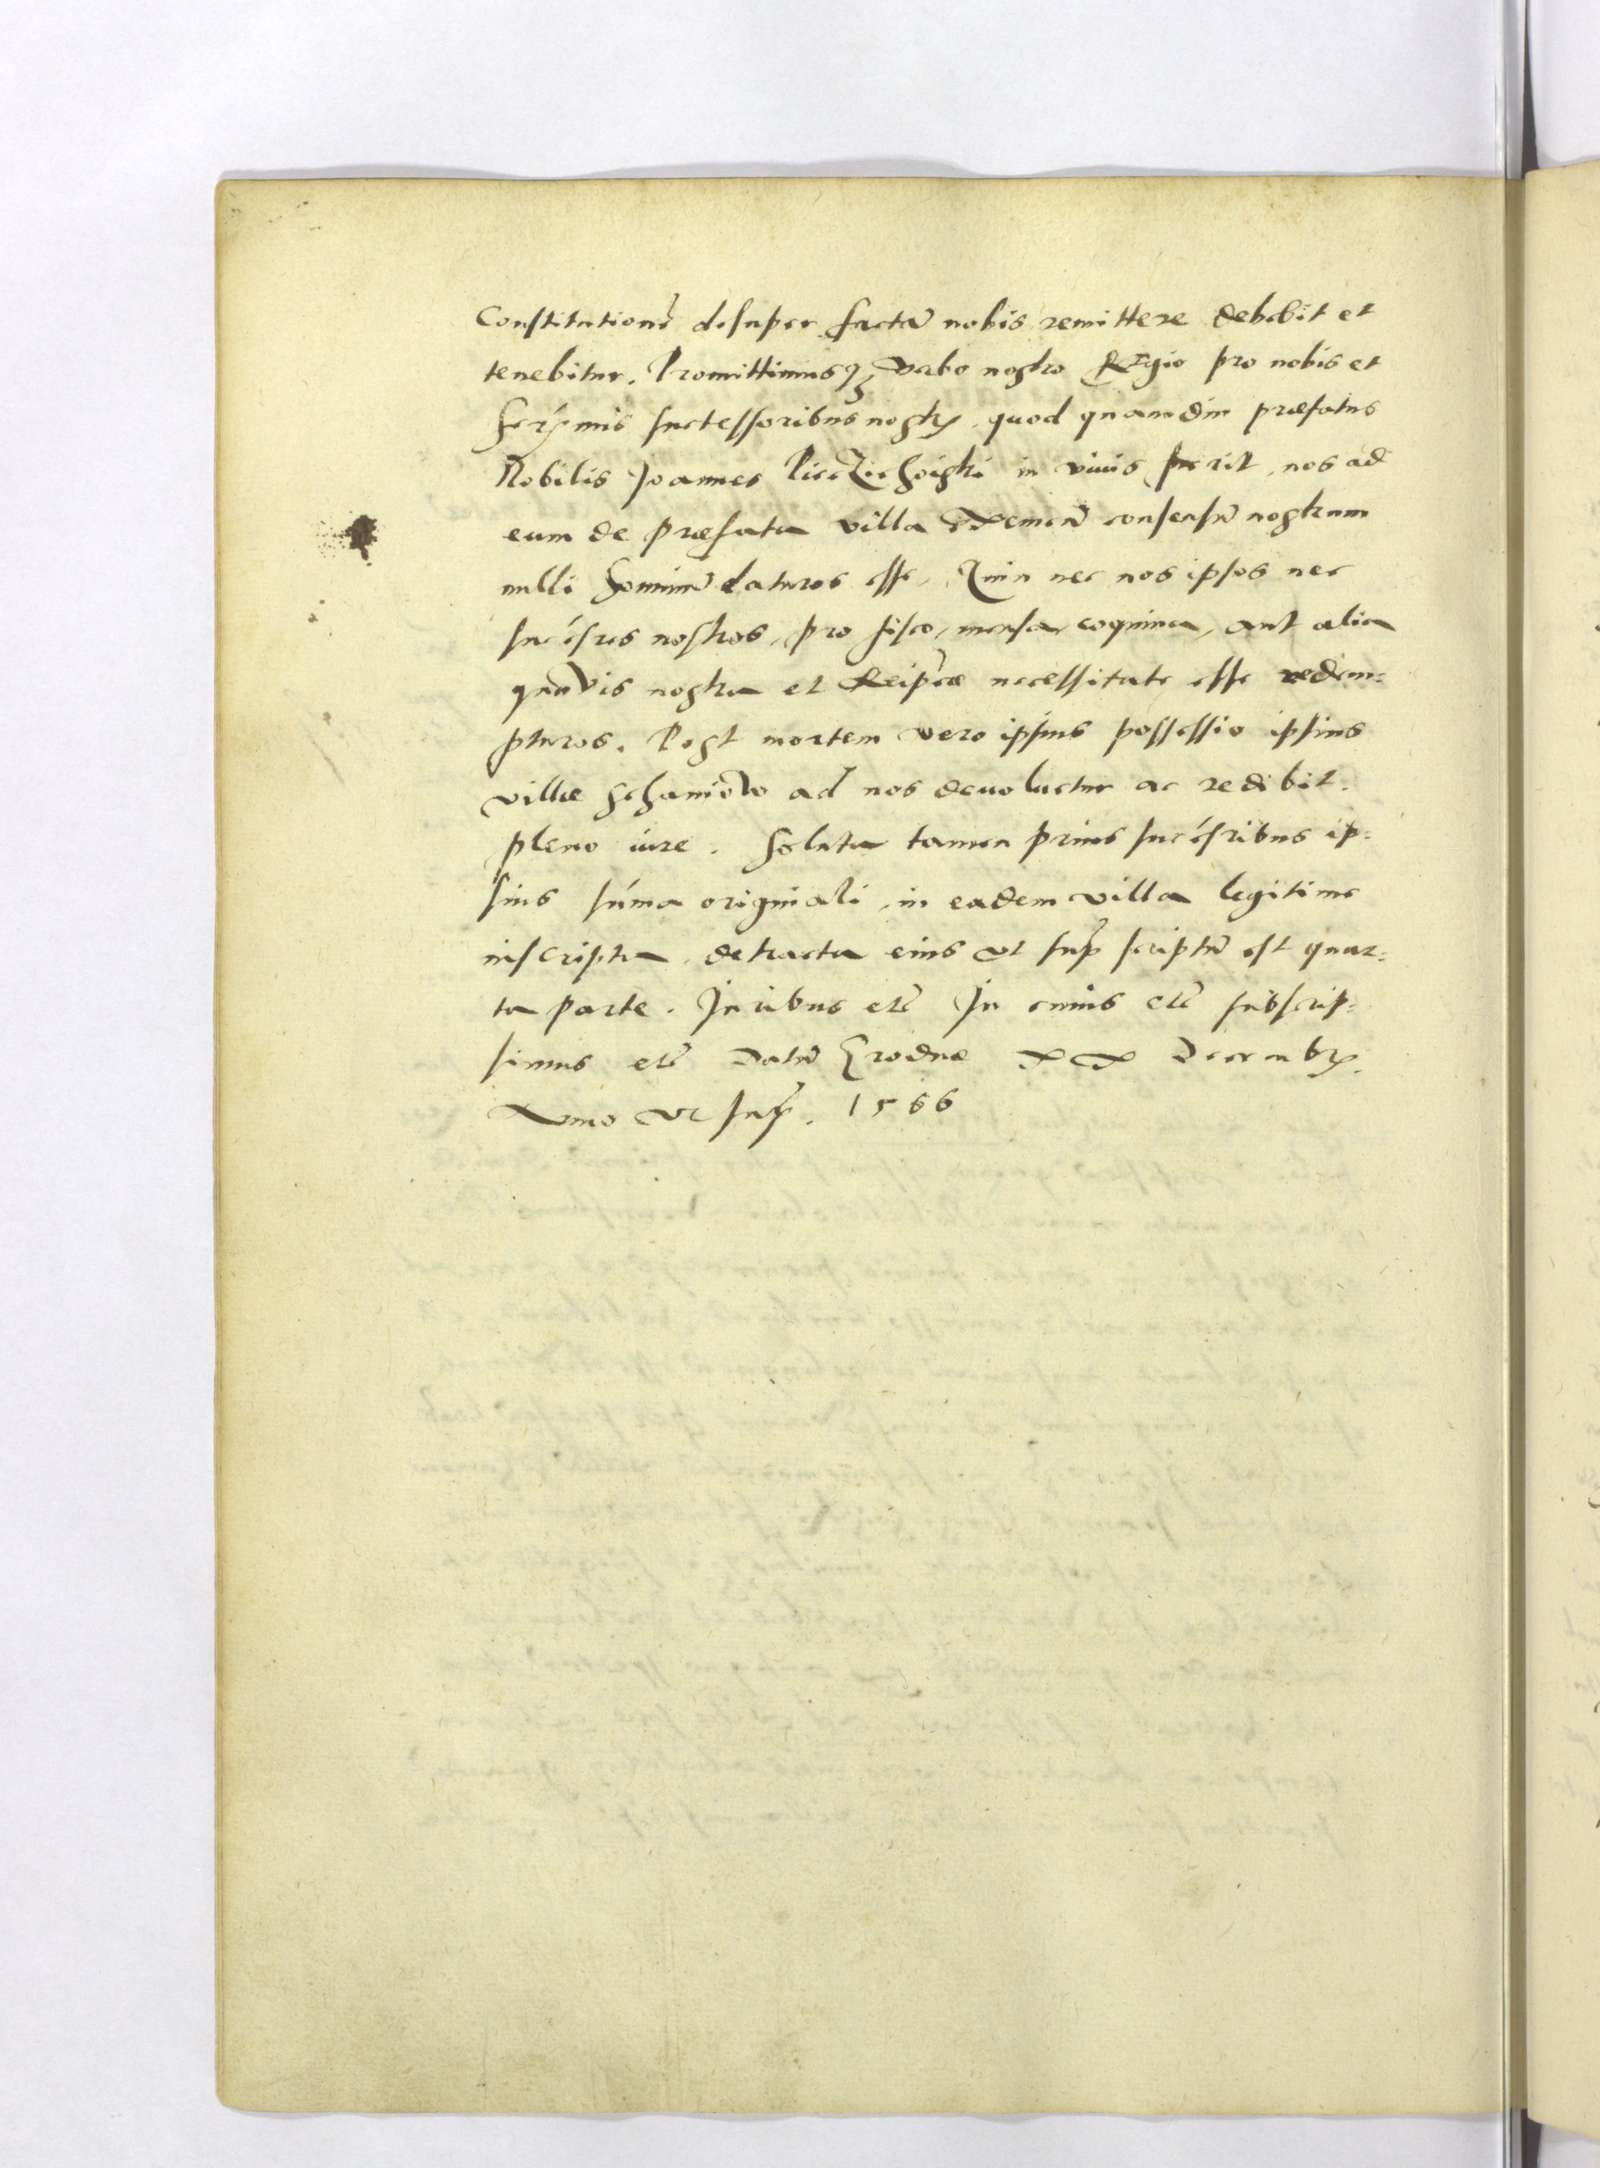 Constitutione desuper factā nobis remittere debebit et
tenebitur. Promittimusqȝ verbo nostro Regio pro nobis et
Serᵐmis successoribus nostris, quod quamdiu præfatus
Nobilis Joannes in viuis fuerit, nos ad
eum de præfata villa eximenᵈ consensū nostrum
nulli hominū daturos esse, Quin nec nos ipsos nec
succēsres nostros, pro fisco, mensa, coquina, aut alia
quāvis nostra et Reipcæ necessitate esse redem=
pturos. Post mortem vero ipsius possessio ipsius
villæ ad nos deuoluetur ac redibit
pleno iure. Soluta tamen prius succēsribus ip=
sius sūma originali, in eadem villa legitime
inscripta, detracta eius vt sup scriptū est quar=
ta parte. Juribus etc̄ In cuius etc̄ subscrip=
simus etc̄ Datū Grodnæ xx Decembris
Anno vt supᵃ. 1566